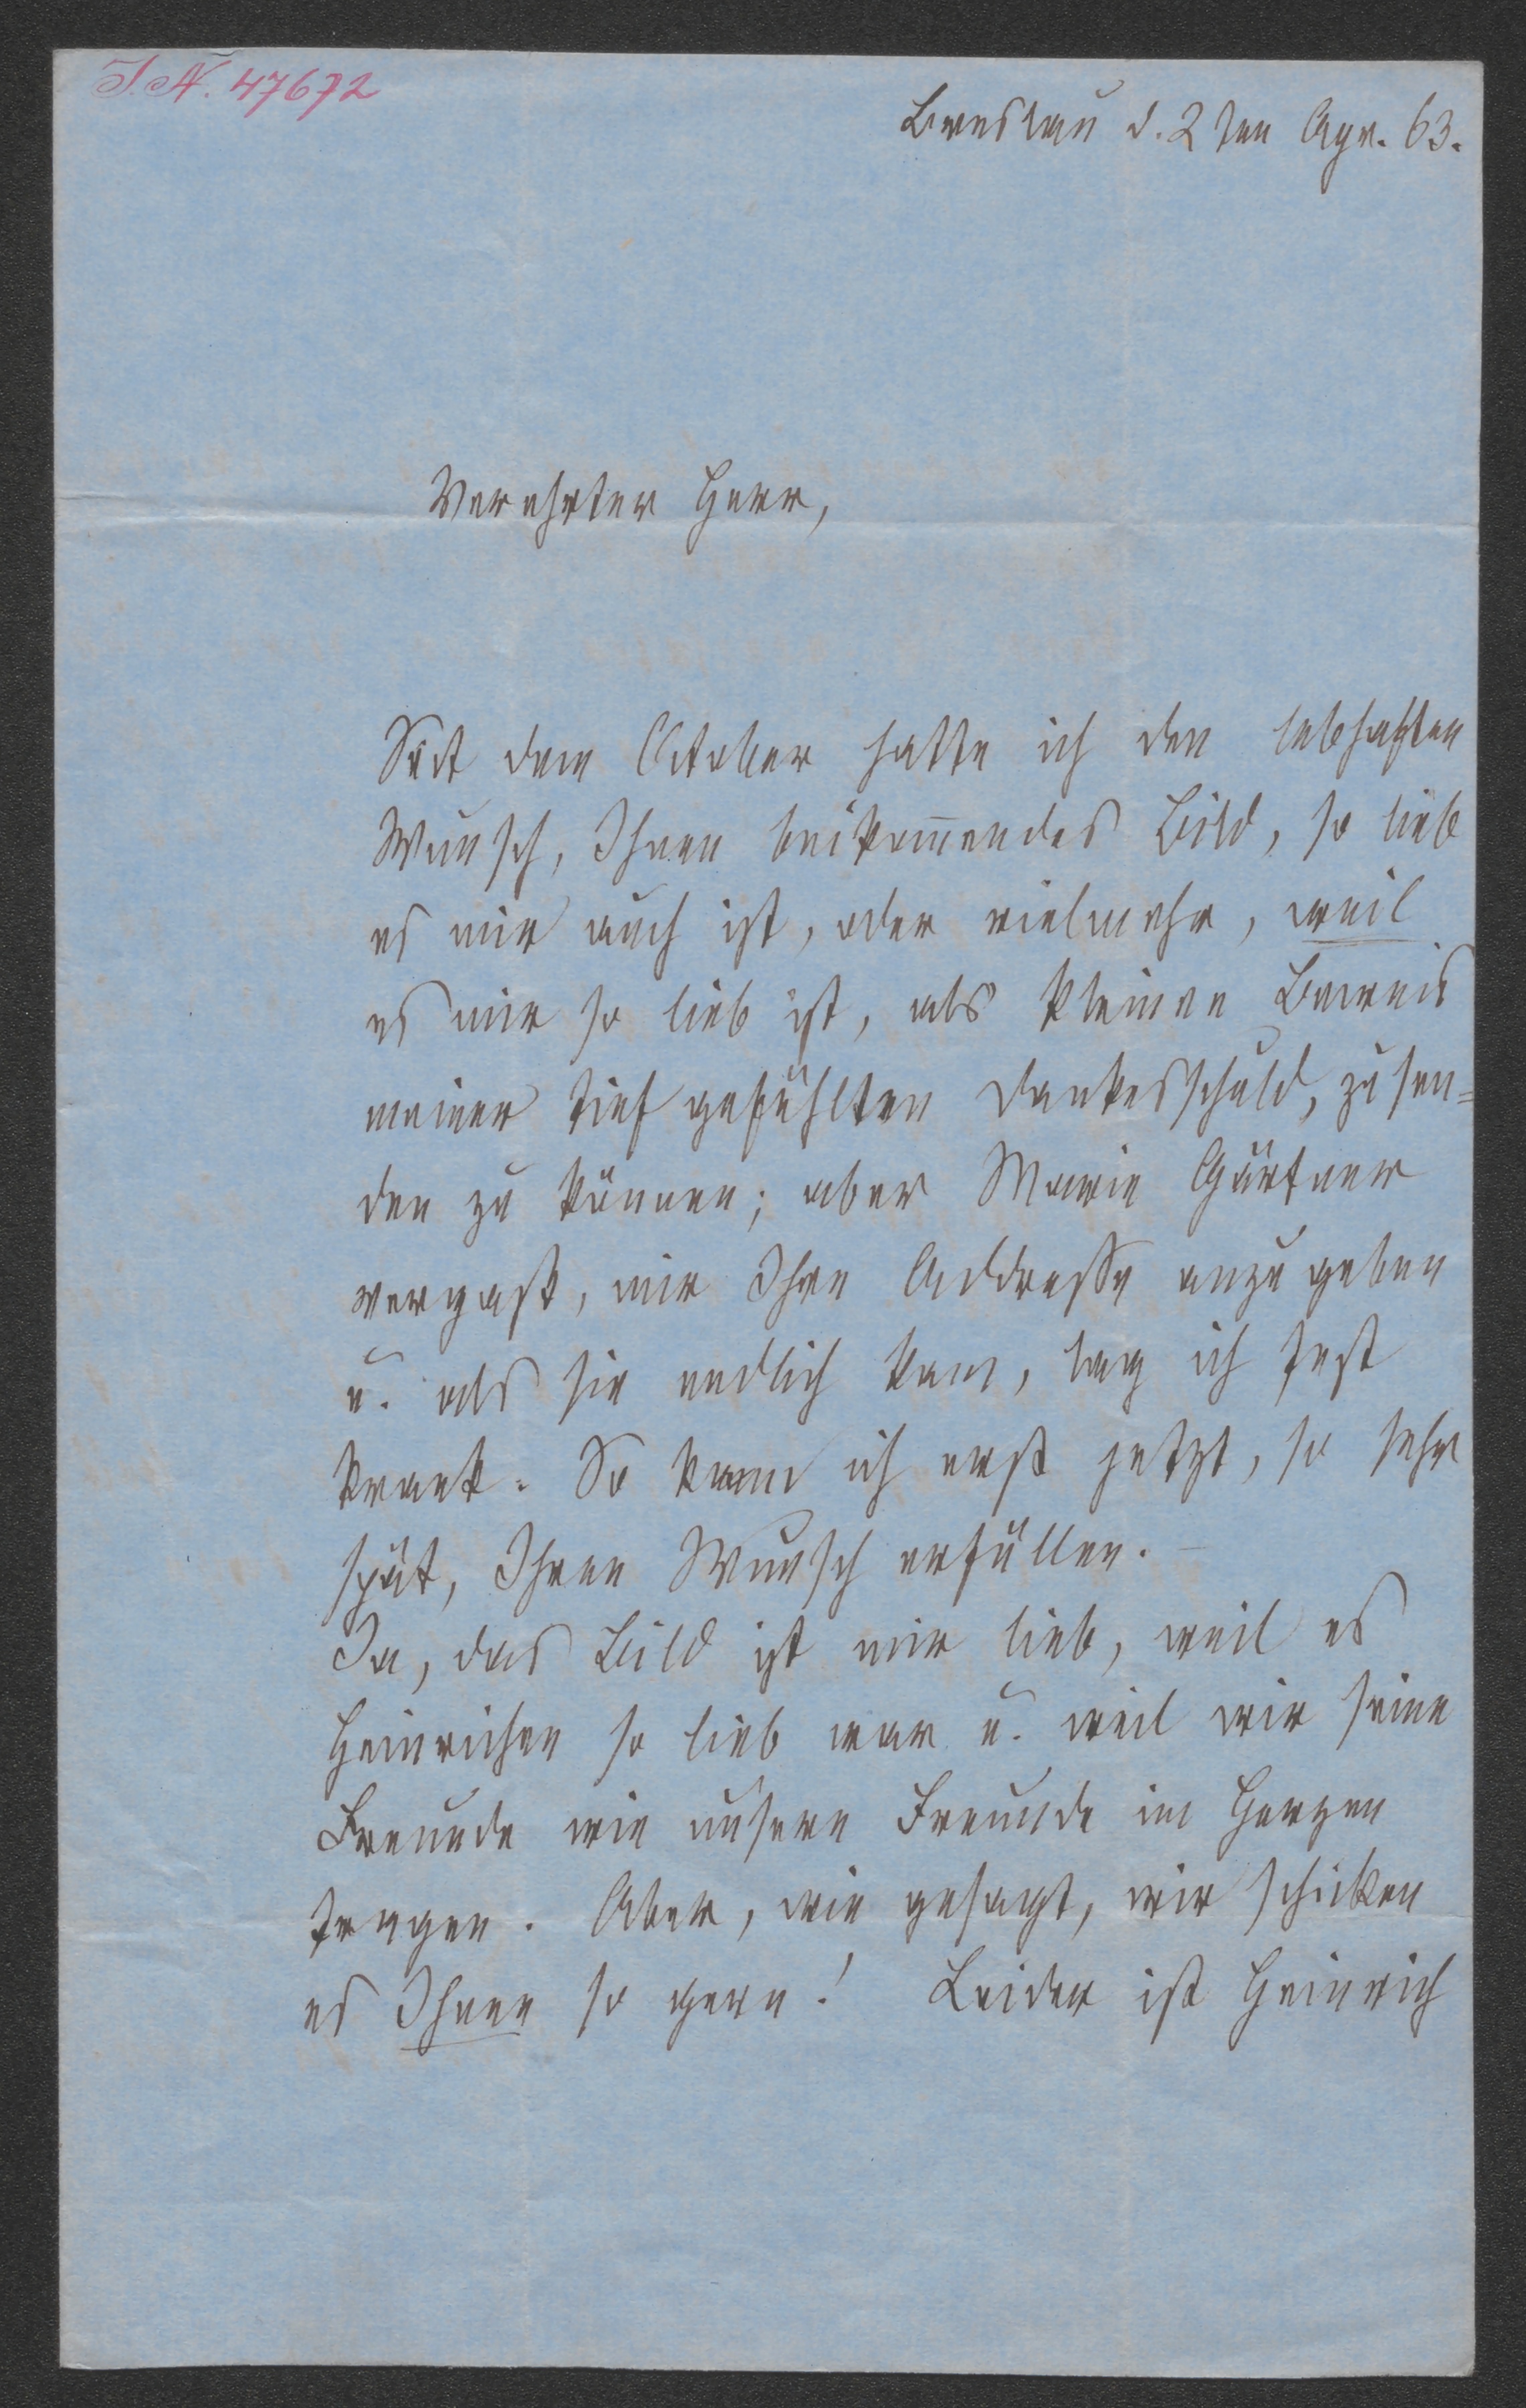 I. N. 47672
Breslau d. 2ten Apr. 63.
Verehrter Herr,
Seit dem October hatte ich den lebhaften
Wunsch, Ihnen beikom̅endes Bild, so lieb
es mir auch ist, oder vielmehr, weil
es mir so lieb ist, als kleinen Beweis
meiner tief gefühlten Dankesschuld, zusen=
den zu können; aber Marie Gärtner
vergaß, mir Ihre Addresse anzugeben
u. als sie endlich kam, lag ich fest
krank. So kann ich erst jetzt, so sehr
spät, Ihren Wunsch erfüllen. –
Ja, das Bild ist mir lieb, weil es
Heinrichen so lieb war u. weil wir seine
Freunde wie unsere Freunde im Herzen
tragen. Aber, wie gesagt, wir schicken
es Ihnen so gern! Leider ist Heinrich